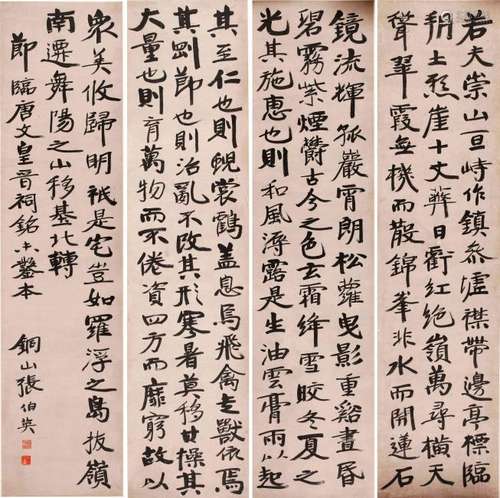 若夫崇山亘峙作鎮參墟襟帶邊亭標臨
朔土懸崖十丈蔽日虧紅絶嶺萬尋橫天
聳翠霞無機而散錦峯非水而開蓮石
鏡流輝孤巖宵朗松蘿曳影重谿晝昏
碧霧紫煙欝古今之色玄霜絳雪皎冬夏之
光其施惠也則和風溽露是生油雲膏雨以起
其至仁也則蜺裳鶴蓋息焉飛禽走獸依焉
其剛節也則治亂不改其形寒暑莫移其操其
大量也則育萬物而不倦資四方而靡窮故以
衆美攸歸明祇是宅豈如羅浮之島拔嶺
南遷舞陽之山移基北轉
節臨唐文皇晉祠銘未鑿本
銅山張伯英